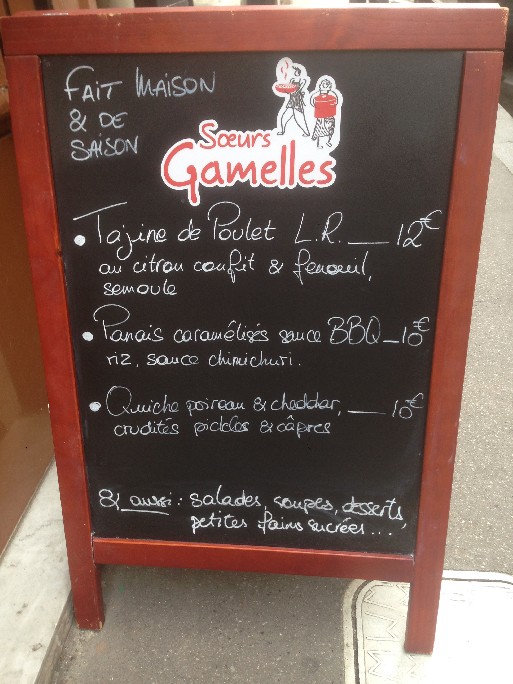 FAIT MAISON
& DE
SAISON
Sœurs
Gamelles
• Tajine de Poulet L.R. __ 12€
au citron confit & fenouil,
semoule
• Panais caramélisés sauce BBQ _ 10€
riz, sauce chimichuri.
• Quiche poireau & cheddar, __ 10€
crudités pickles & câpres
& aussi : salades, soupes, desserts,
petites faims sucrées....